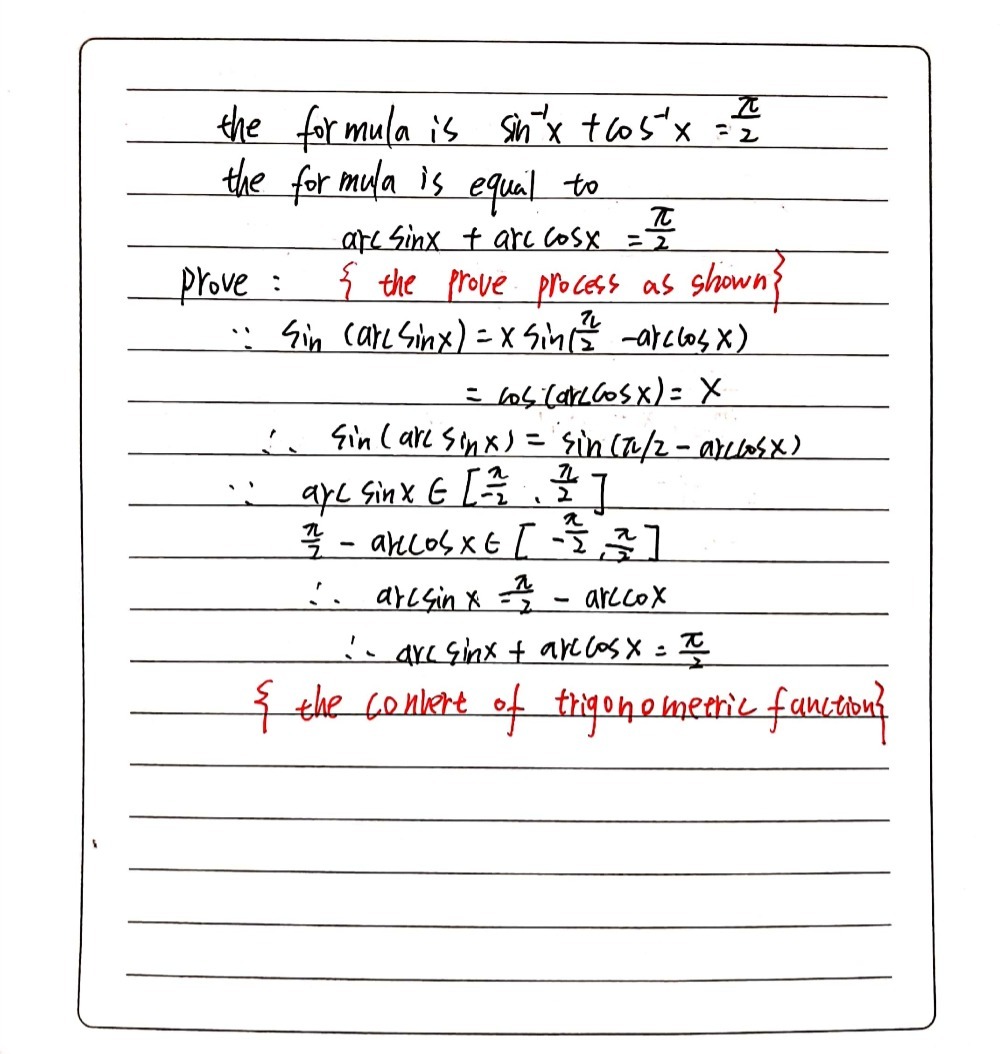 the formula is sin⁻¹x + cos⁻¹x = π/2
the formula is equal to
arc sinx + arc cosx = π/2
prove : { the prove process as shown}
∵ sin (arc sinx) = x sin(π/2 - arccosx)
= cos (arccosx) = x
∴ sin (arc sinx) = sin (π/2 - arccosx)
∵ arc sinx ∈ [-π/2 , π/2]
π/2 - arccosx ∈ [-π/2, π/2]
∴ arcsin x = π/2 - arccox
∴ arc sinx + arccosx = π/2
{ the convert of trigonometric function}